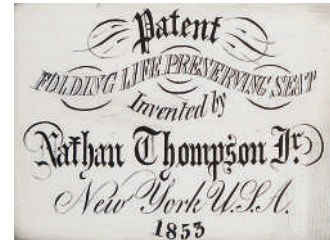 Patent
FOLDING LIFE PRESERVING SEAT
Invented by
Nathan Thompson Jr.
New York U.S.A.
1853